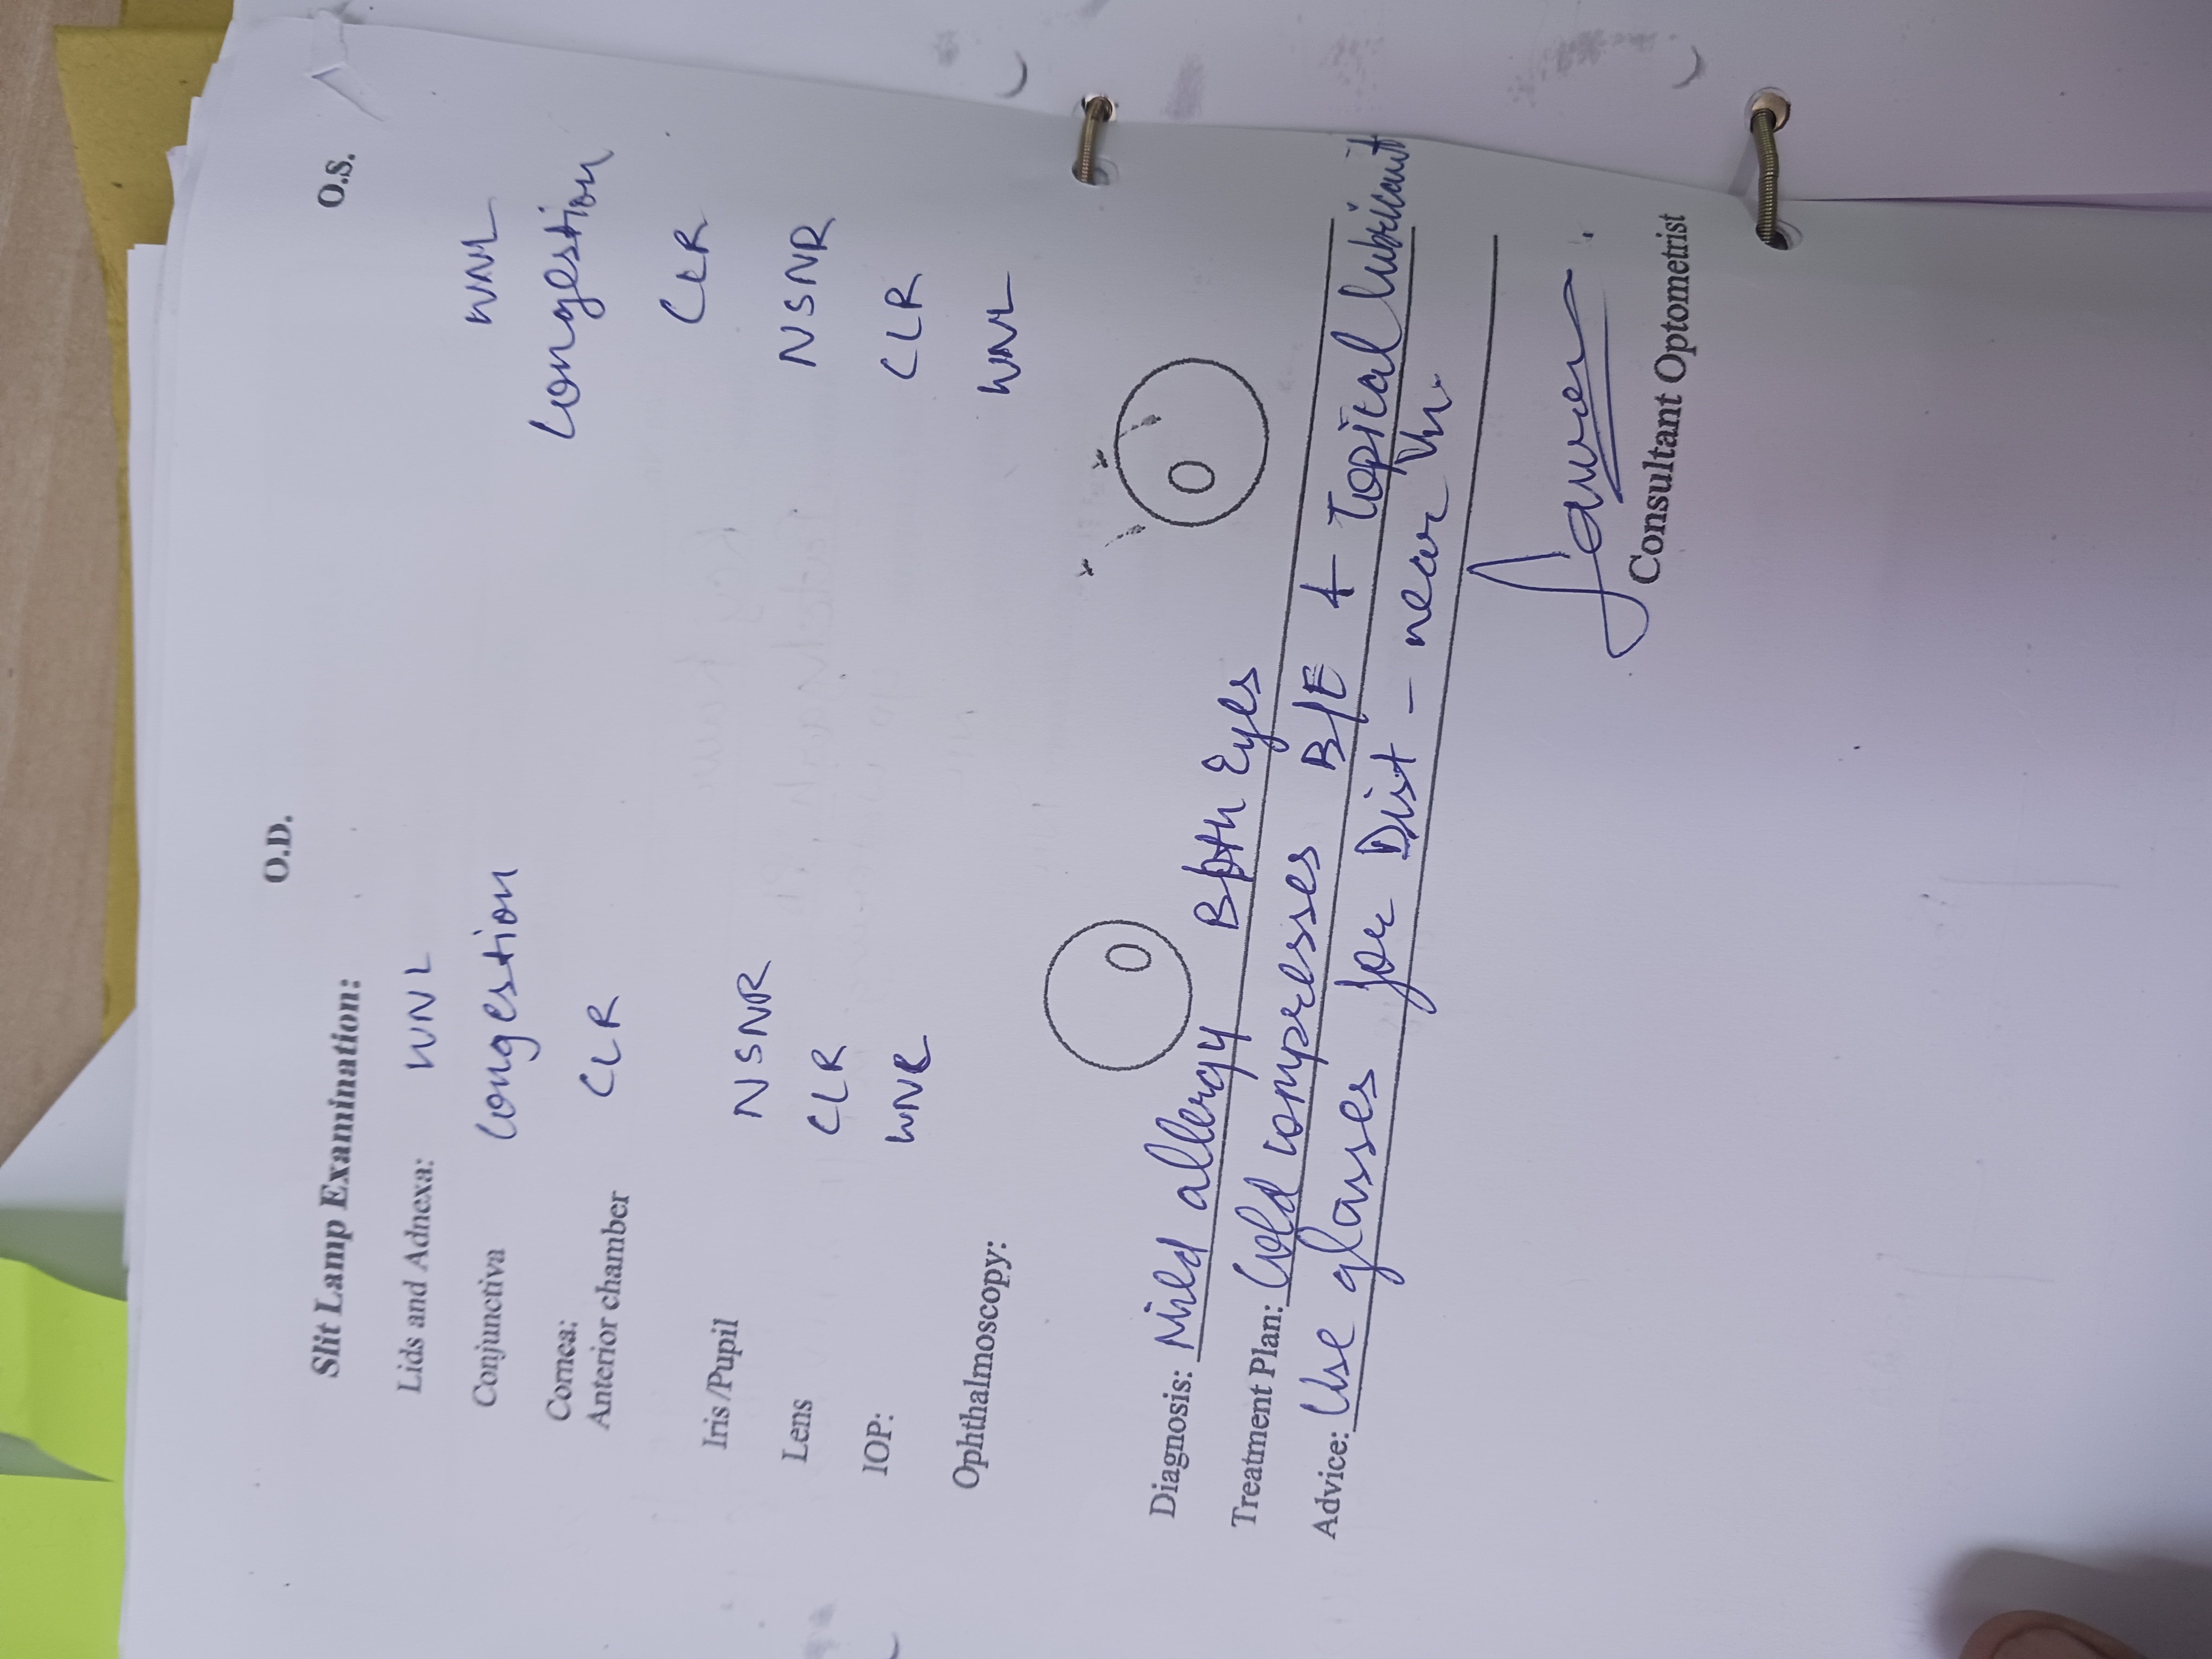 O.D. O.S.
Slit Lamp Examination:
Lids and Adnexa: WNL WNL
Conjunctiva Congestion Congestion
Cornea:
Anterior chamber CLR CLR
Iris /Pupil NSNR NSNR
Lens CLR CLR
IOP: WNL WNL
Ophthalmoscopy:
Diagnosis: Mild allergy Both Eyes
Treatment Plan: Cold compresses B/E + Topical lubricant
Advice: Use glasses for Dist - near Vn.
Consultant Optometrist